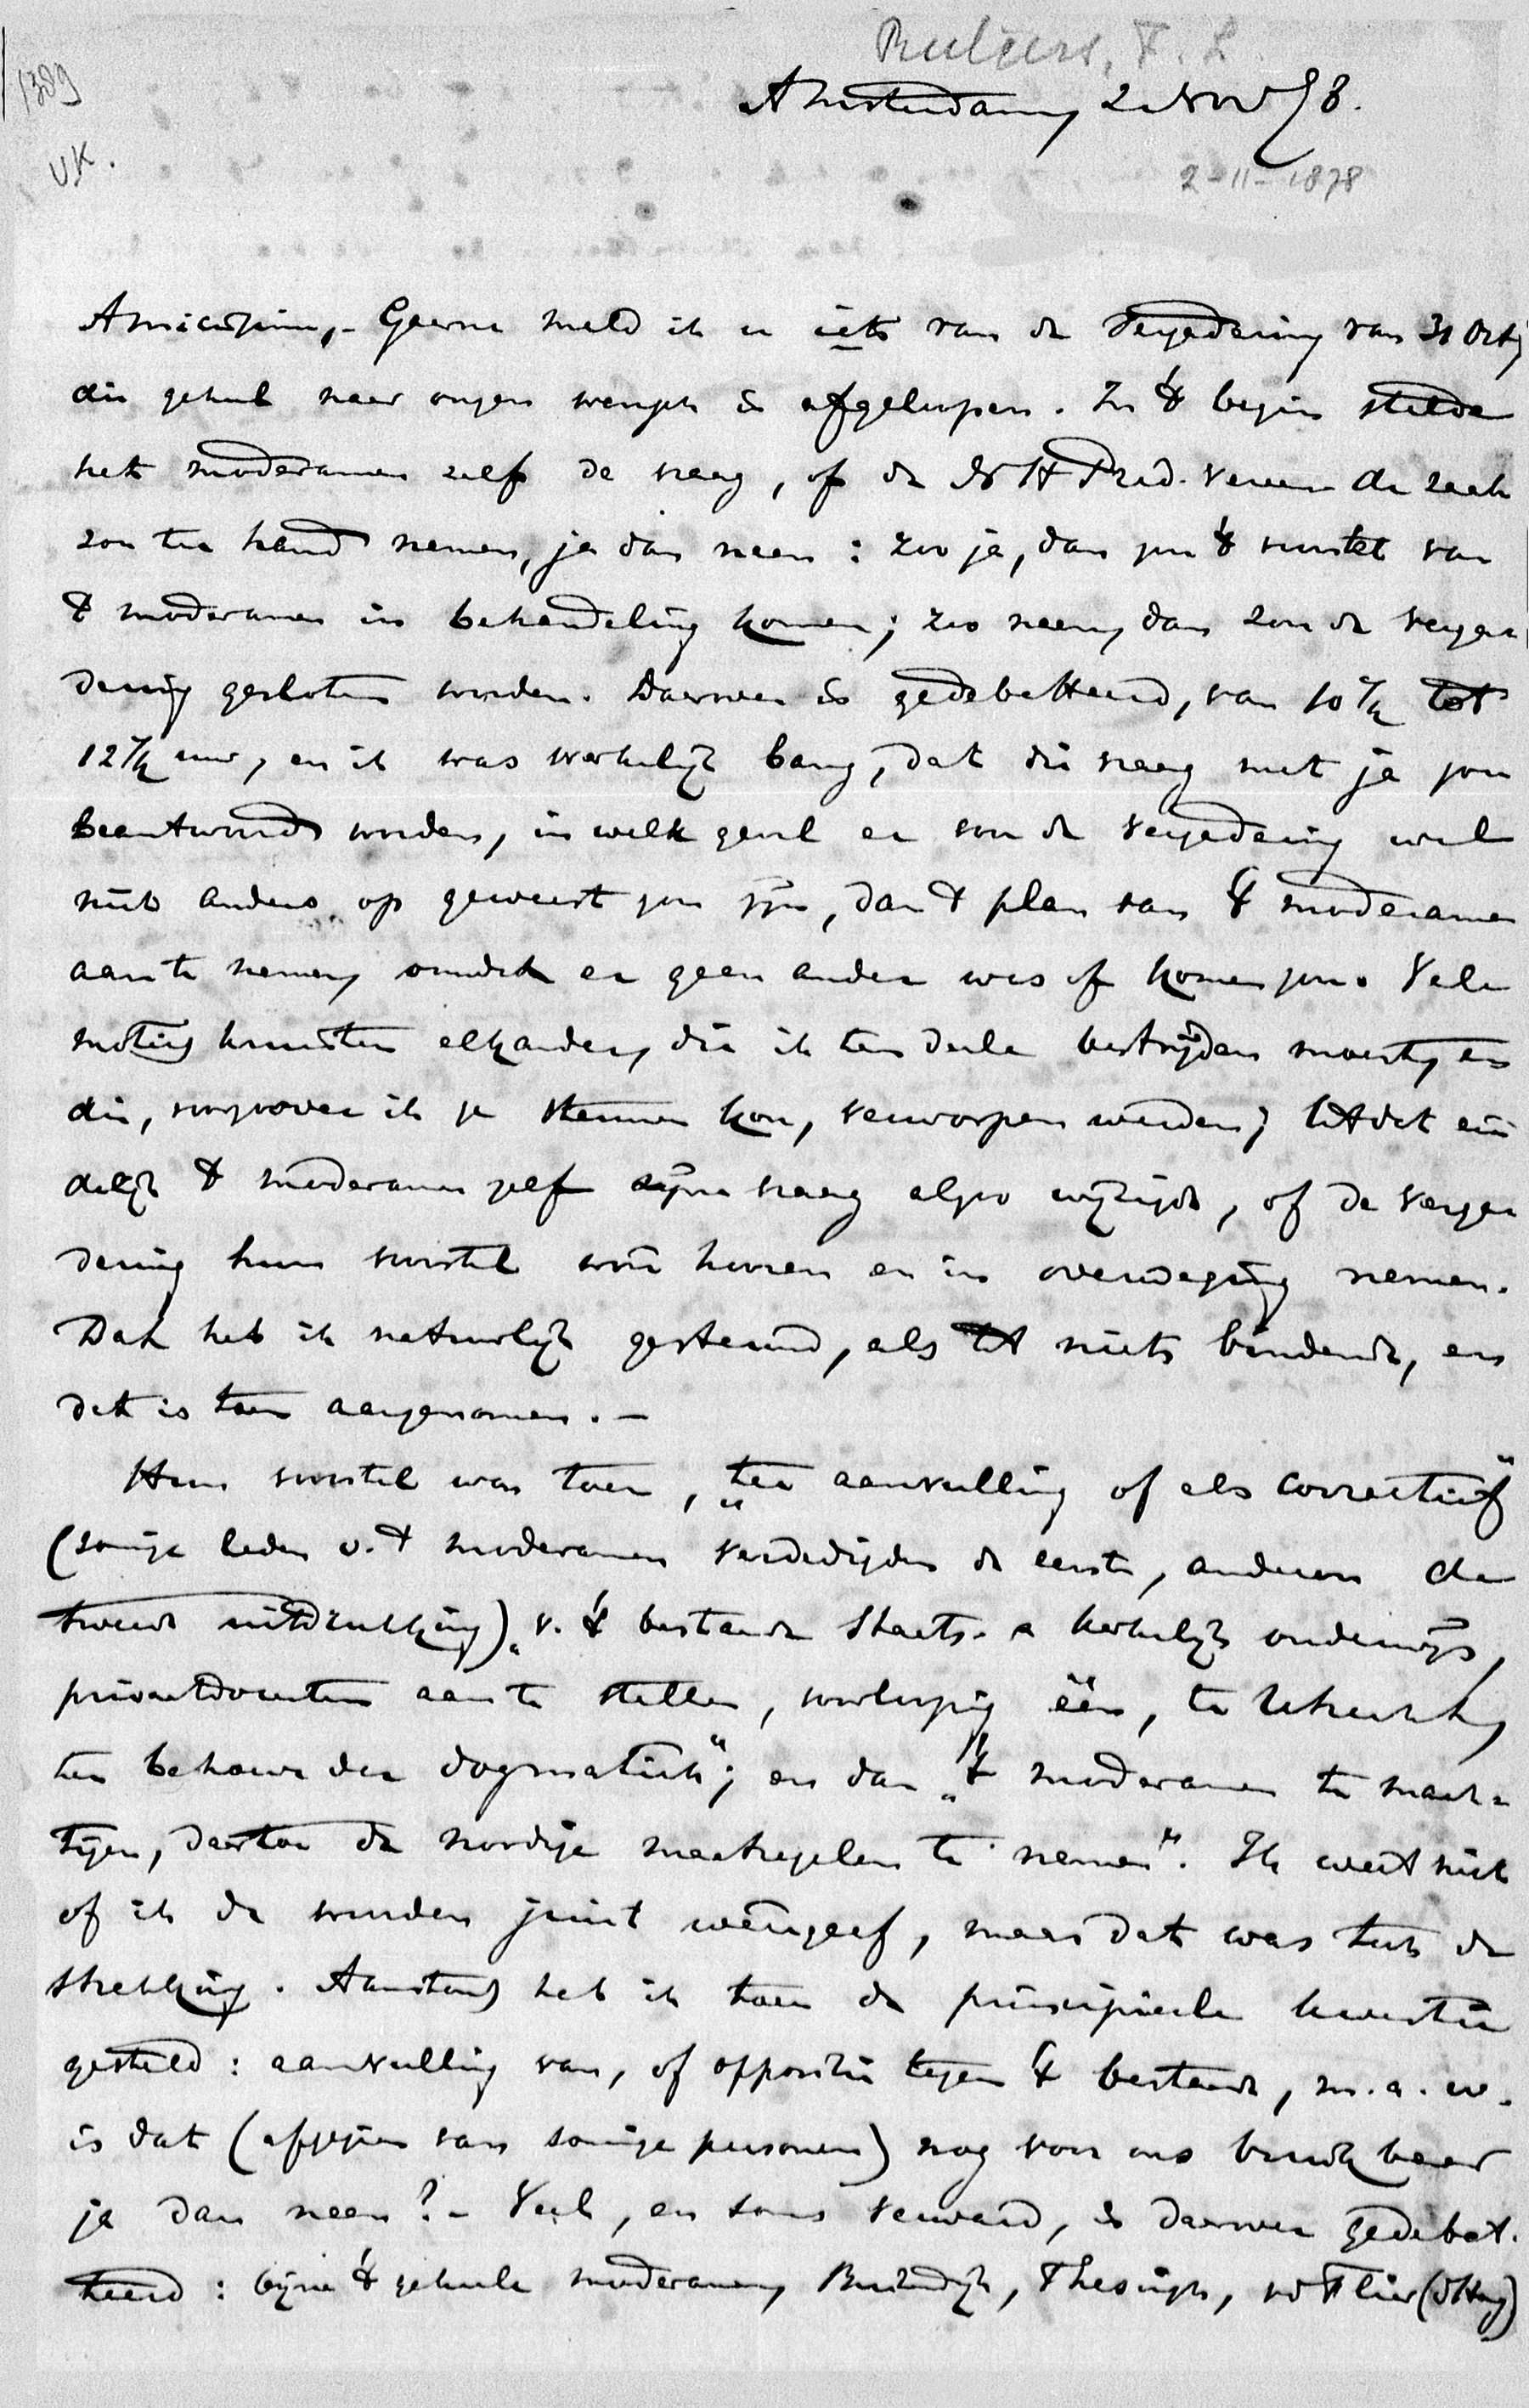 Rutgers, F. L.
1389
Amsterdam, 2 Nov 78.
VK.
2-11-1878
Amicissime, - Gaarne meld ik u iets van de Vergadering van 31 Oct,
die geheel naar onzen wensch is afgeloopen. In 't begin stelde
het moderamen zelf de vraag, of de N H Pred. Vereen. de zaak
zou ter hand nemen, ja dan neen: zoo ja, dan zou 't voorstel van
't moderamen in behandeling komen; zoo neen, dan zou de verga
dering gesloten worden. Daarover is gedebatteerd, van 10 1/2 tot
12 1/2 uur, en ik was werkelijk bang, dat die vraag met ja zou
beantwoord worden, in welk geval er voor de Vergadering wel
niets anders op geweest zou zijn, dan 't plan van 't moderamen
aan te nemen, omdat er geen ander was of komen zou. Vele
motiës kruisten elkander, die ik ten deele bestrijden moest, en
die, voorzoover ik ze steunen kon, verworpen werden; totdat ein
delijk 't moderamen zelf zijne vraag alzoo wijzigde, of de verga
dering hun voorstel wou hooren en in overweging nemen.
Dat heb ik natuurlijk gesteund, als tot niets bindende, en
dat is toen aangenomen. -
Hun voorstel was toen, „ter aanvulling of als correctief"
(sommige leden v. 't moderamen verdedigden de eerste, anderen de
tweede uitdrukking) „v. 't bestaande Staats- en kerkelijk onderwijs,
privaatdocenten aan te stellen, voorloopig één, te Utrecht,
ten behoeve der dogmatiek"; en dan „'t moderamen te mach-
tigen, daartoe de noodige maatregelen te nemen". Ik weet niet
of ik de woorden juist weêrgeef, maar dat was toch de
strekking. Aanstonds heb ik toen de principieele kwestie
gesteld: aanvulling van, of oppositie tegen 't bestaande, m.a.w.
is dat (afgezien van sommige personen) nog voor ons bruikbaar
ja dan neen? - Veel, en soms verward, is daarover gedebat-
teerd: bijna 't geheele moderamen, Buitendijk, Thesingh, vd Flier (d Haag)